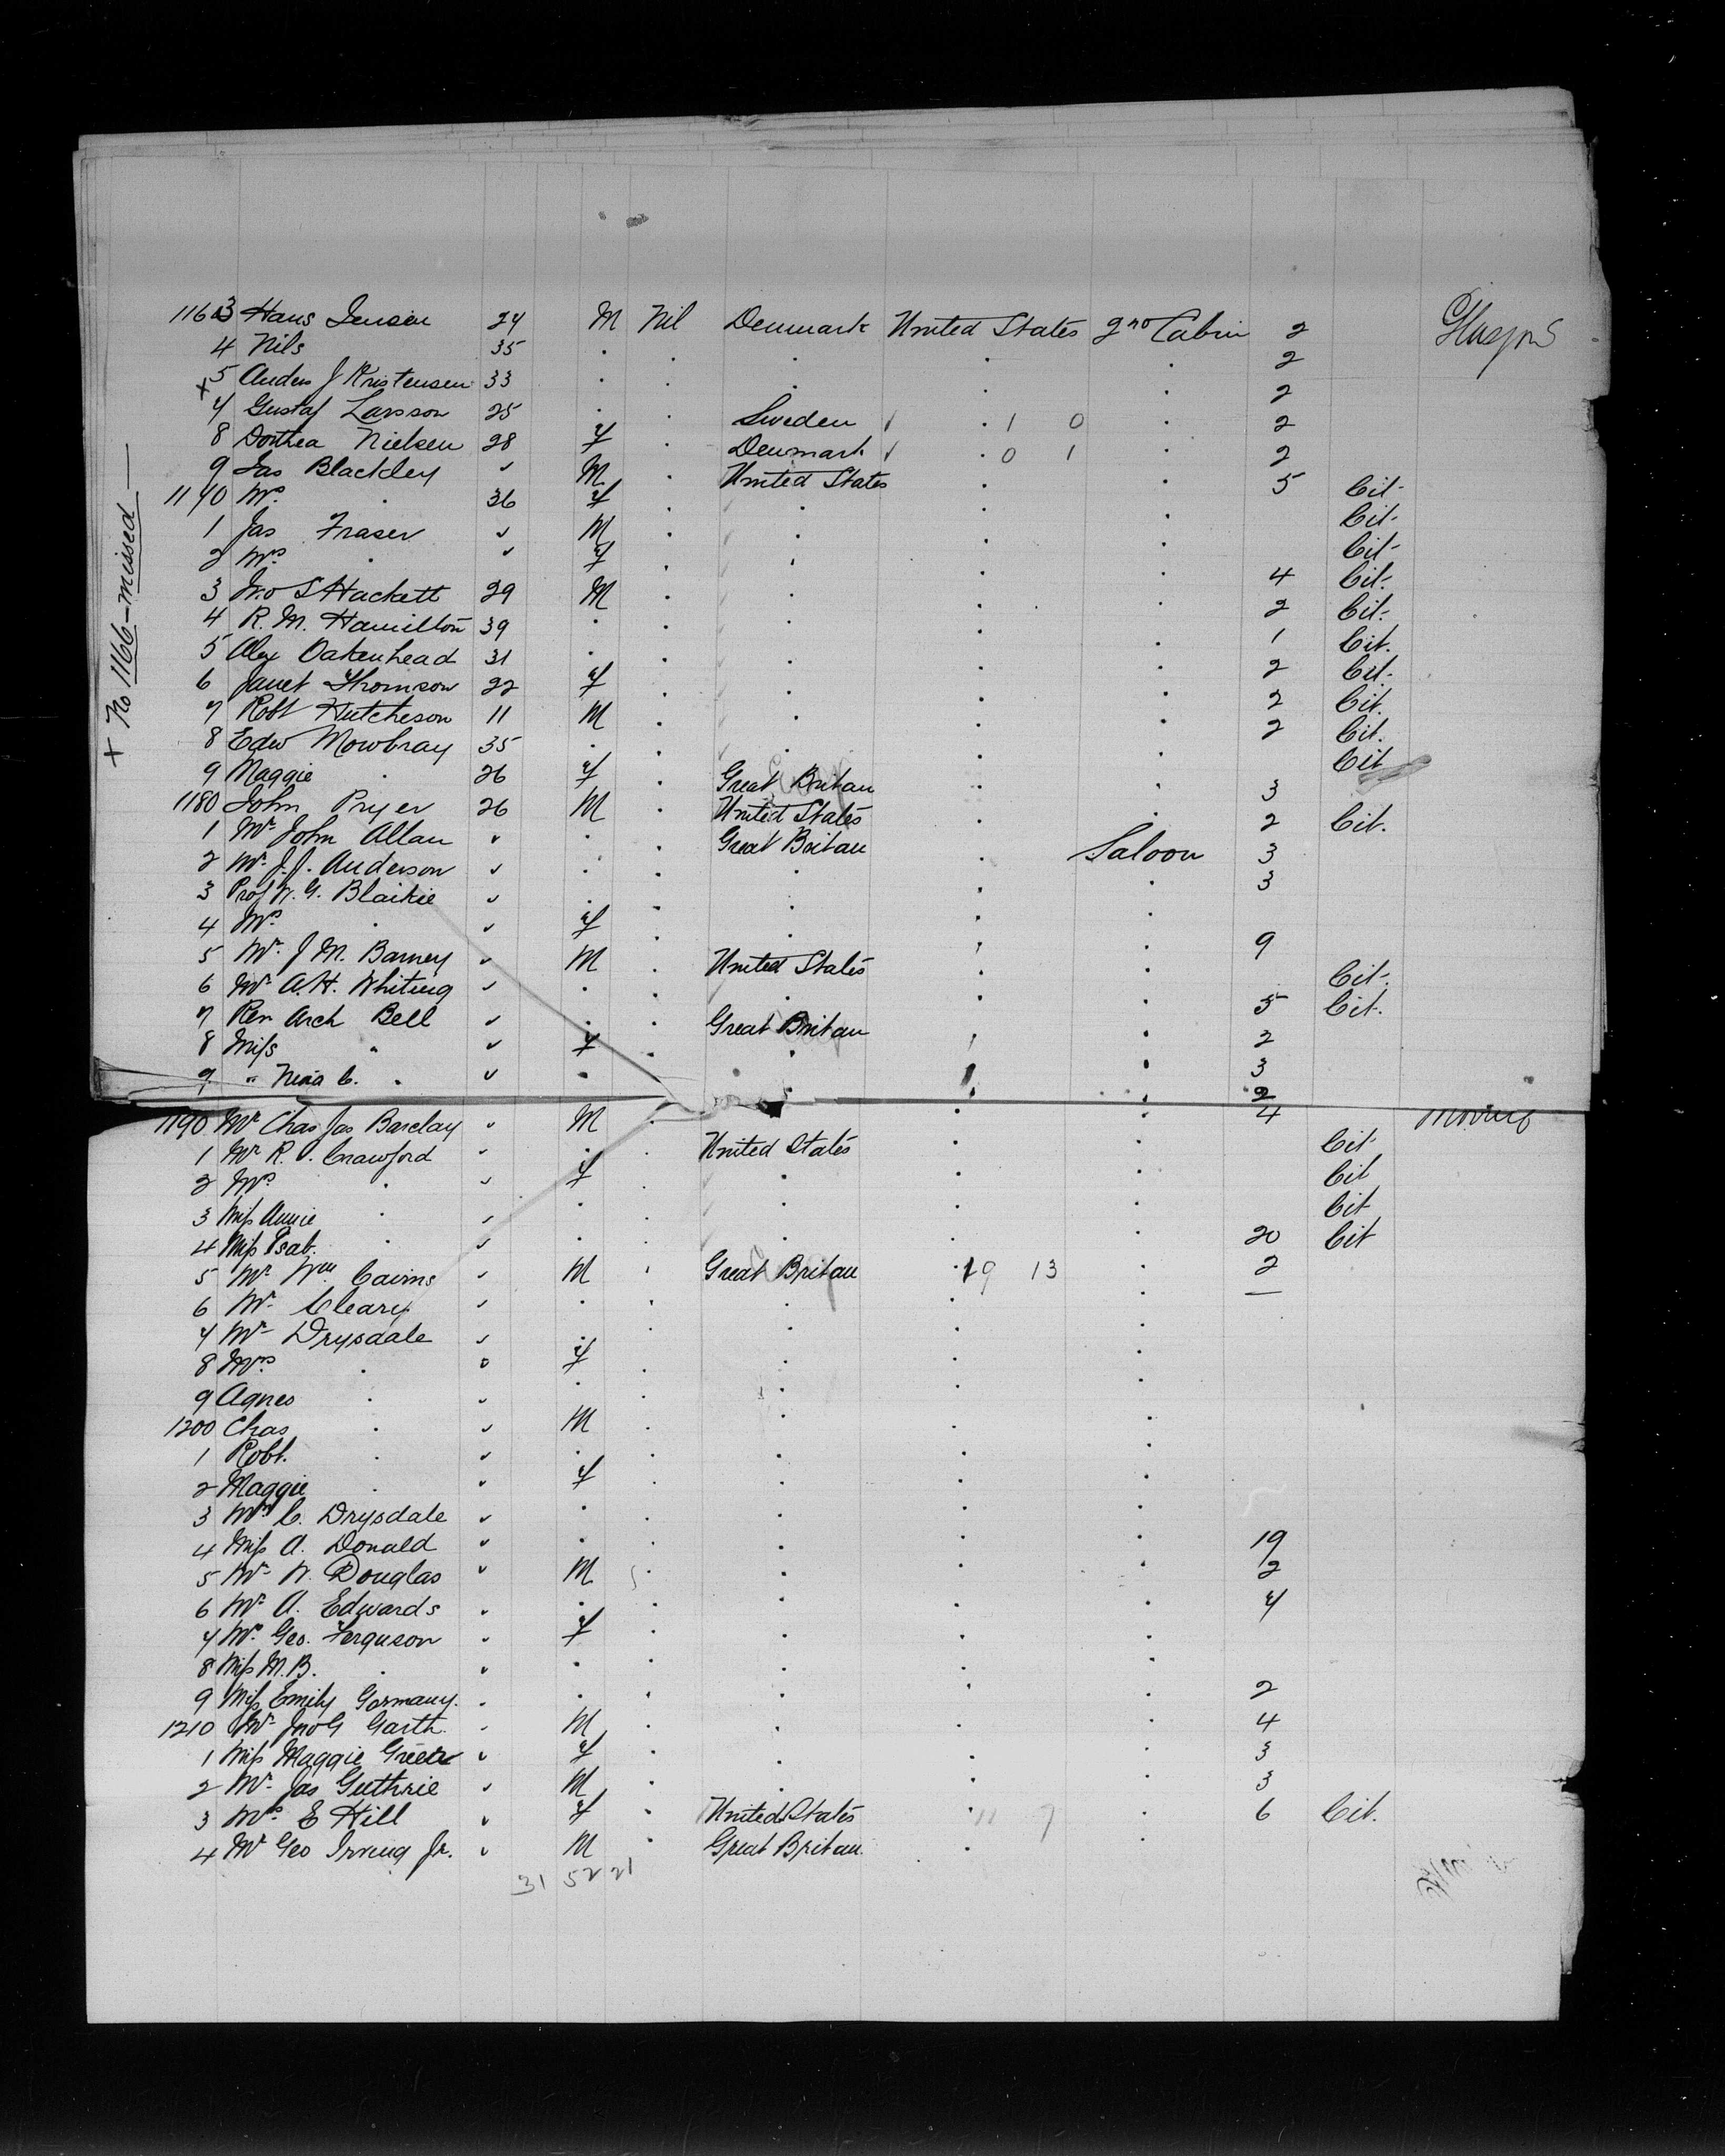 1163 Hans Jensen 24 M Nil Denmark United States 2nd Cabin 2
4 Nils 35 . . . . . 2
x 5 Anders J Kristensen 33 . . . . . 2
7 Gustaf Larsson 25 . . Sweden . 1 0 . 2
8 Dorthea Nielsen 28 f . Denmark . 0 1 . 2
9 Jas Blackley ✓ M . United States . . 5 Cit.
1170 Mrs . 36 f . . . . Cit.
1 Jas Fraser ✓ M . . . . Cit.
2 Mrs . ✓ f . . . . 4 Cit.
3 Jno S Hackett 29 M . . . . 2 Cit.
4 R. M. Hamilton 39 . . . . . 1 Cit.
5 Alex Oakenhead 31 . . . . . 2 Cit.
6 Janet Thomson 22 f . . . . 2 Cit.
7 Robt Hutcheson 11 M . . . . 2 Cit.
8 Edw Mowbray 35 . . . . . Cit
9 Maggie . 26 f . Great Britain . . 3
1180 John Pryer 26 M . United States . . 2 Cit.
1 Mr John Allan ✓ . . Great Britain . Saloon 3
2 Mr J. J. Anderson ✓ . . . . . 3
3 Prof W. G. Blaikie ✓ . . . . .
4 Mrs . ✓ f . . . . 9
5 Mr J M. Barney ✓ M . United States . . Cit.
6 Mr A. H. Whiting ✓ . . . . . 5 Cit.
7 Rev Arch Bell ✓ . . Great Britain . . 2
8 Miss " ✓ f . . . . 3
9 " Nina C. . ✓ . . . . 2
1190 Mr Chas Jas Barclay ✓ M . . . 4
1 Mr R. . Crawford ✓ . . United States . . Cit
2 Mrs . ✓ f . . . Cit
3 Miss Annie . ✓ . . . . . Cit
4 Miss Isab. . ✓ . . . . . 20 Cit
5 Mr Wm Cairns ✓ M . Great Britain . 19 13 . 2
6 Mr Cleary ✓ . . . . . —
7 Mr Drysdale ✓ . . . . .
8 Mrs . ✓ f . . . .
9 Agnes . ✓ . . . . .
1200 Chas . ✓ M . . . .
1 Robt. . ✓ . . . . .
2 Maggie . ✓ f . . . .
3 Mrs C. Drysdale ✓ . . . . .
4 Miss A. Donald ✓ . . . . . 19
5 Mr W. Douglas ✓ M . . . . 2
6 Mr A. Edwards ✓ . . . . . 7
7 Mrs Geo. Ferguson ✓ f . . . .
8 Miss M. B. . ✓ . . . . .
9 Miss Emily Gormany. ✓ . . . . . 2
1210 Mr Jno G Garth. ✓ M . . . . 4
1 Miss Maggie Green ✓ f . . . . 3
2 Mr Jas Guthrie ✓ M . . . . 3
3 Mrs E Hill ✓ f . United States . 11 7 . 6 Cit.
4 Mr Geo Irving Jr. ✓ M . Great Britain . .
31 52 21
x No 1166 – missed —